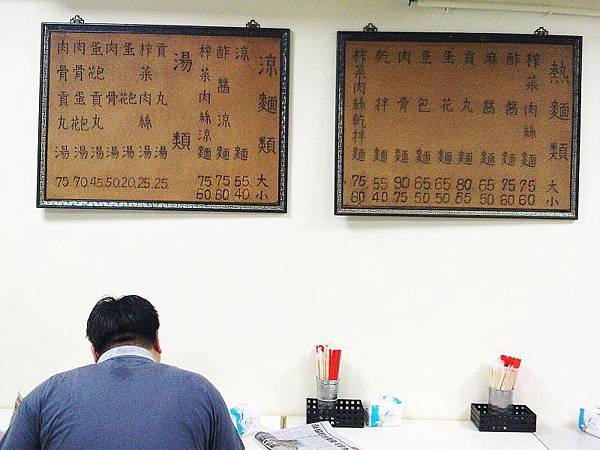 熱麵類 大 小
榨菜肉絲麵 75 60
酢醬麵 75 60
麻醬麵 65 50
貢丸麵 80 65
蛋花麵 65 50
蛋包麵 65 50
肉骨麵 90 75
乾拌麵 55 40
榨菜肉絲乾拌麵 75 60
涼麵類 大 小
涼麵 55 40
酢醬涼麵 75 60
榨菜肉絲涼麵 75 60
湯類
貢丸湯 25.
榨菜肉絲湯 25.
蛋湯 20.
肉骨湯 50.
蛋貢丸湯 45.
肉骨蛋湯 70.
肉骨貢丸湯 75